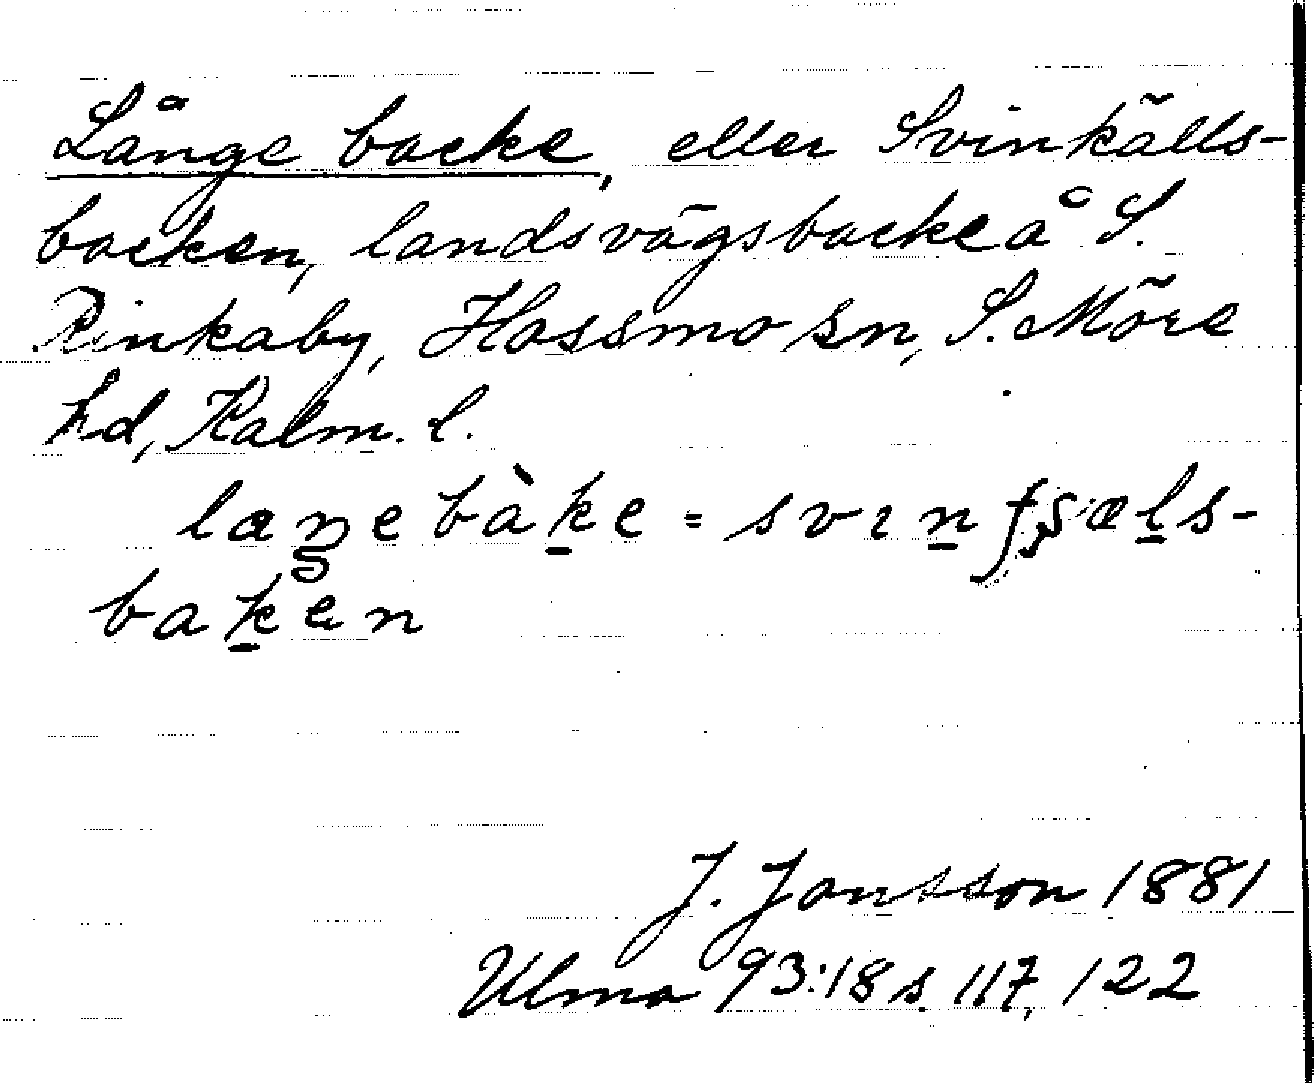 Långe backe, eller Svinkälls-
backen, landsvägsbacke å S.
Rinkaby, Hossmo sn, S. Möre
hd, Kalm. l.
laŋebàk̲e = svın̲ʃʂæl̲s-
bak̲en
J. Jonsson 1881
Ulma 93:18 s. 117, 122